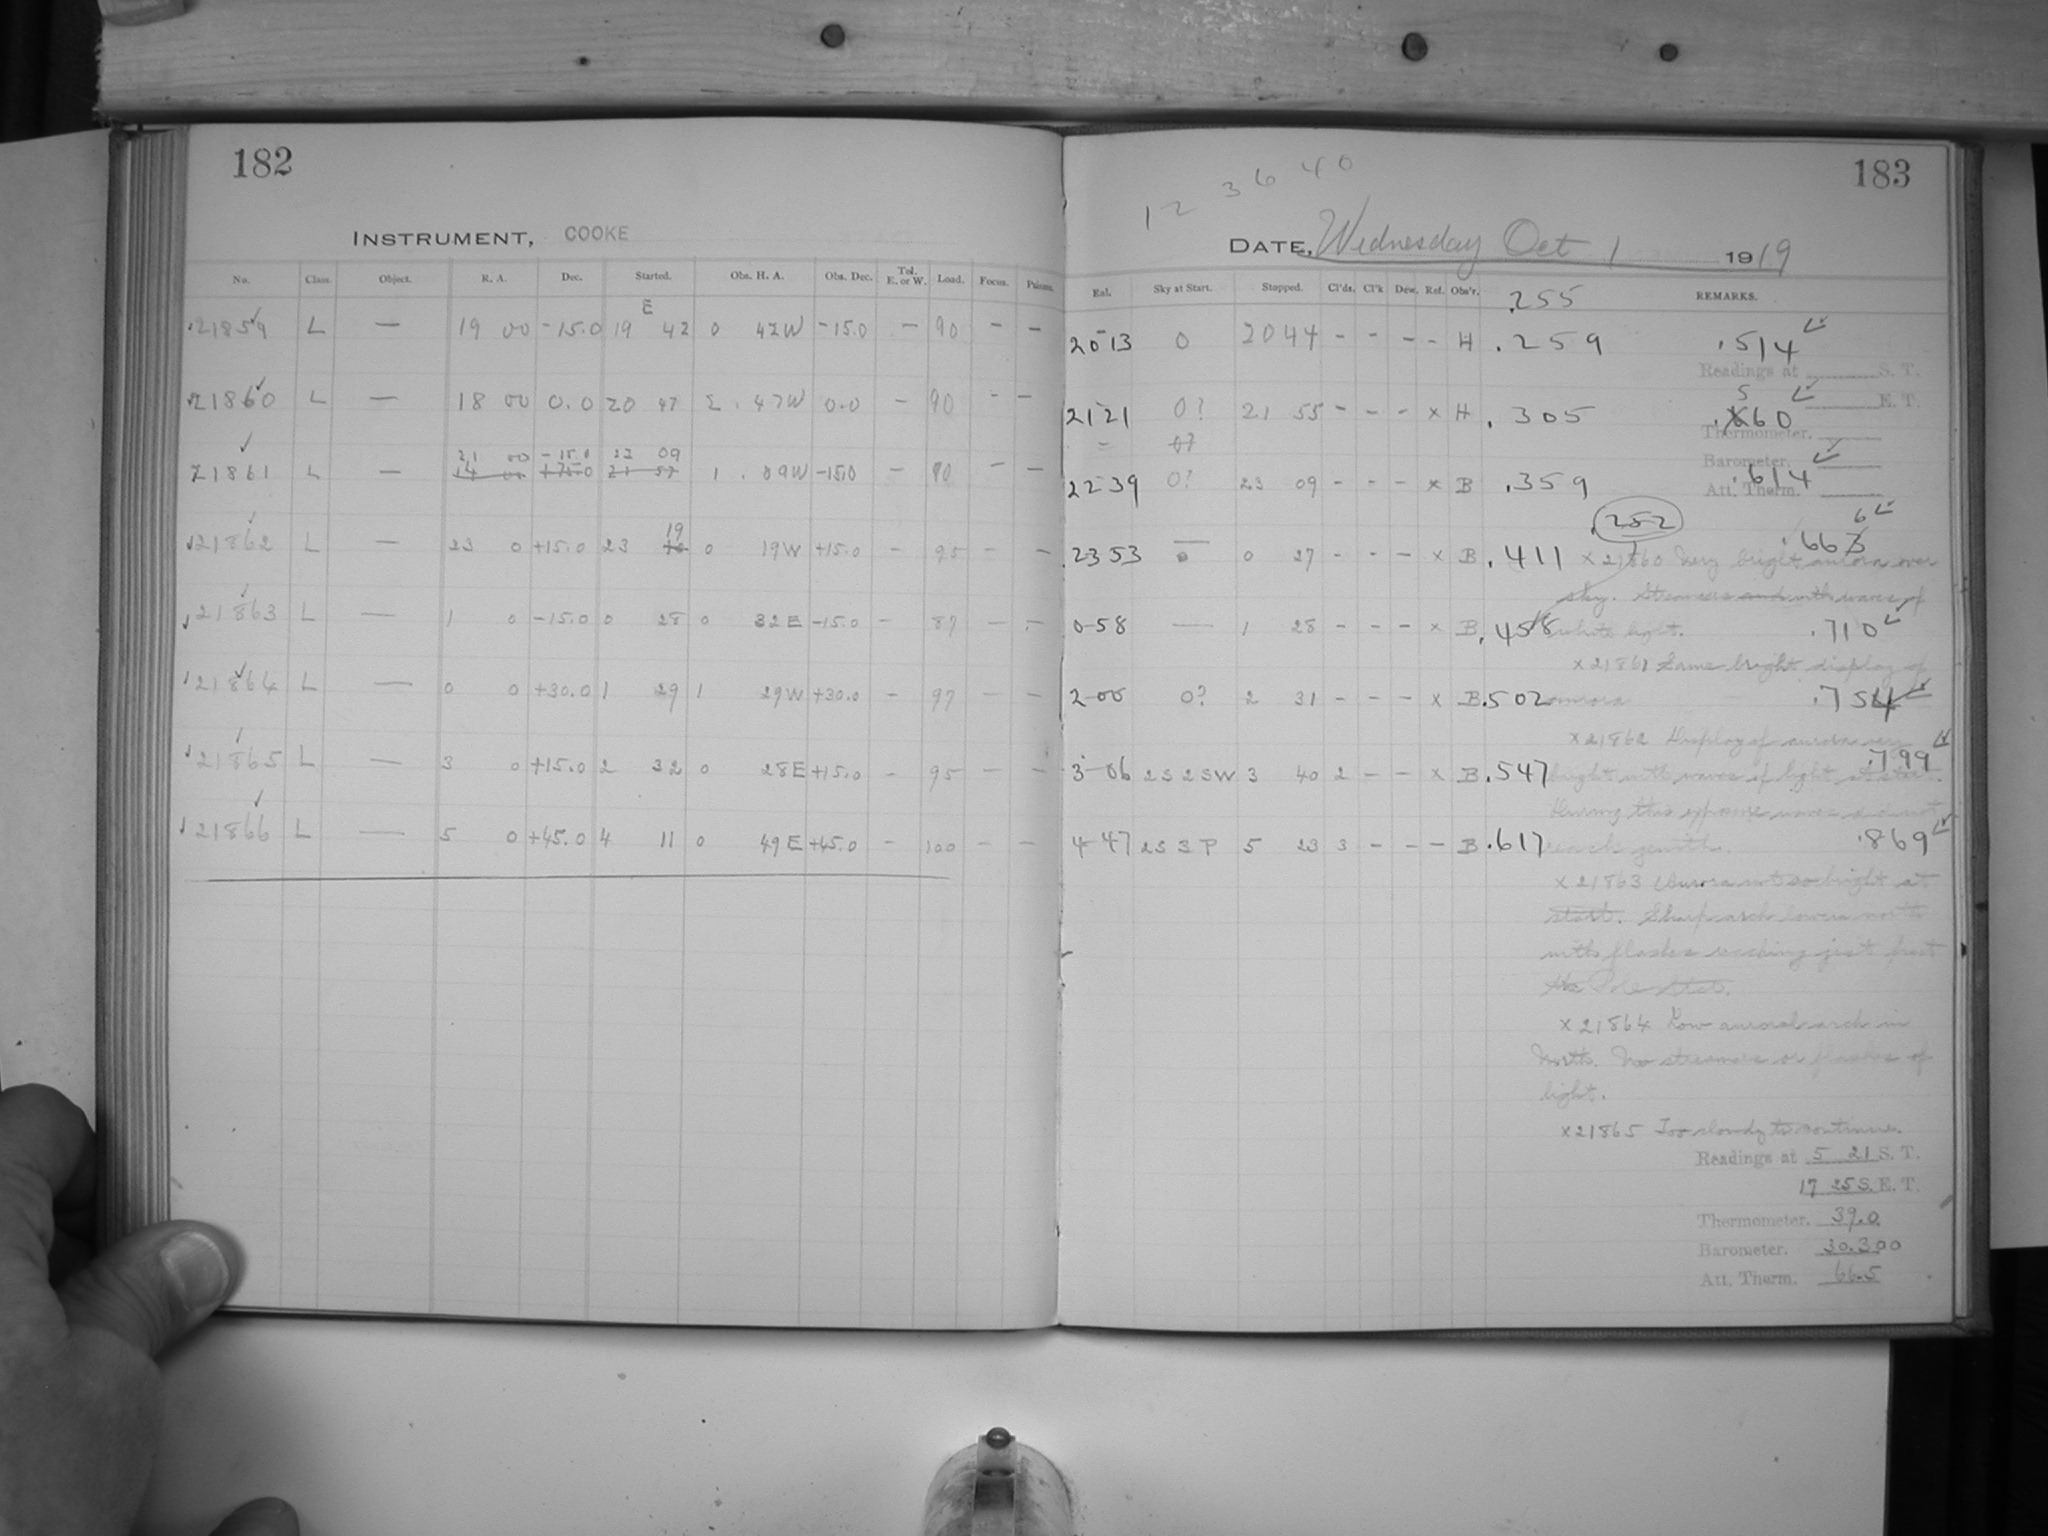 182
INSTRUMENT, COOKE
No. Class. Object. R. A. Dec. Started. Obs. H. A. Obs. Dec. Tel. E. or W. Load. Focus.
E
21859 L — 19 00 -15.0 19 42 0 42W -15.0 — 90 — —
21860 L — 18 00 0.0 20 47 2 . 47W 0.0 — 90 — —
21 00 -15.0 22 09
21861 L — 1 . 09W -15.0 — 90 — —
19
21862 L — 23 0 +15.0 23 0 19W +15.0 — 95 — —
21863 L — 1 0 -15.0 0 28 0 32E -15.0 — 87 — —
21864 L — 0 0 +30.0 1 29 1 29W +30.0 — 97 — —
21865 L — 3 0 +15.0 2 32 0 28E +15.0 — 95 — —
21866 L — 5 0 +45.0 4 11 0 49E +45.0 — 100 — —
183
1 2 3 6 4 0
DATE, Wednesday Oct 1 1919
Eal. Sky at Start. Stopped. Cl'ds. Cl'k Dew. Ref. Obs'r. REMARKS.
.255
20 13 0 20 44 - - - - H .259 .514
Readings at S. T.
5
21 21 0? 21 55 - - - x H .305 .60
E. T.
Thermometer.
Barometer.
22 39 0? 23 09 - - - x B .359 .614
Att. Therm.
.252
6
23 53 0 27 - - - x B .411 .66
x 21860 Very bright aurora over
sky. Streamers and with waves of
0-58 — 1 28 - - - x B .458 white light. .710
x 21861 Same bright display of
2-00 0? 2 31 - - - x B .502 aurora .754
x 21862 Display of aurora very
3-06 2S 2SW 3 40 2 - - x B .547 bright with waves of light at start. .799
During this exposure waves did not
4-47 2S 3 P 5 23 3 - - - B .617 reach zenith. .869
x 21863 Aurora not so bright at
start. Sharp arch lower in north
with flashes reaching just past
the Pole Star.
x 21864 Low auroral arch in
North. No streamers or flashes of
light.
x 21865 Too cloudy to continue.
Readings at 5 21 S. T.
17 25 S. E. T.
Thermometer. 39.0
Barometer. 30.300
Att. Therm. 66.5